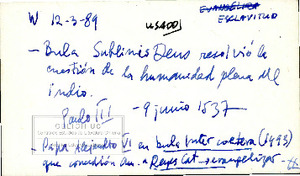 W 12-3-89 USADO EVANGÉLICA
ESCLAVITUD
- Bula Sublimis Deus resolvió la
cuestión de la humanidad plena del
indio.
Paulo III - 9 junio 1537
- Papa Alejandro VI en bula Inter coetera (1493)
que concedían a Reyes Cat → evangelizar -